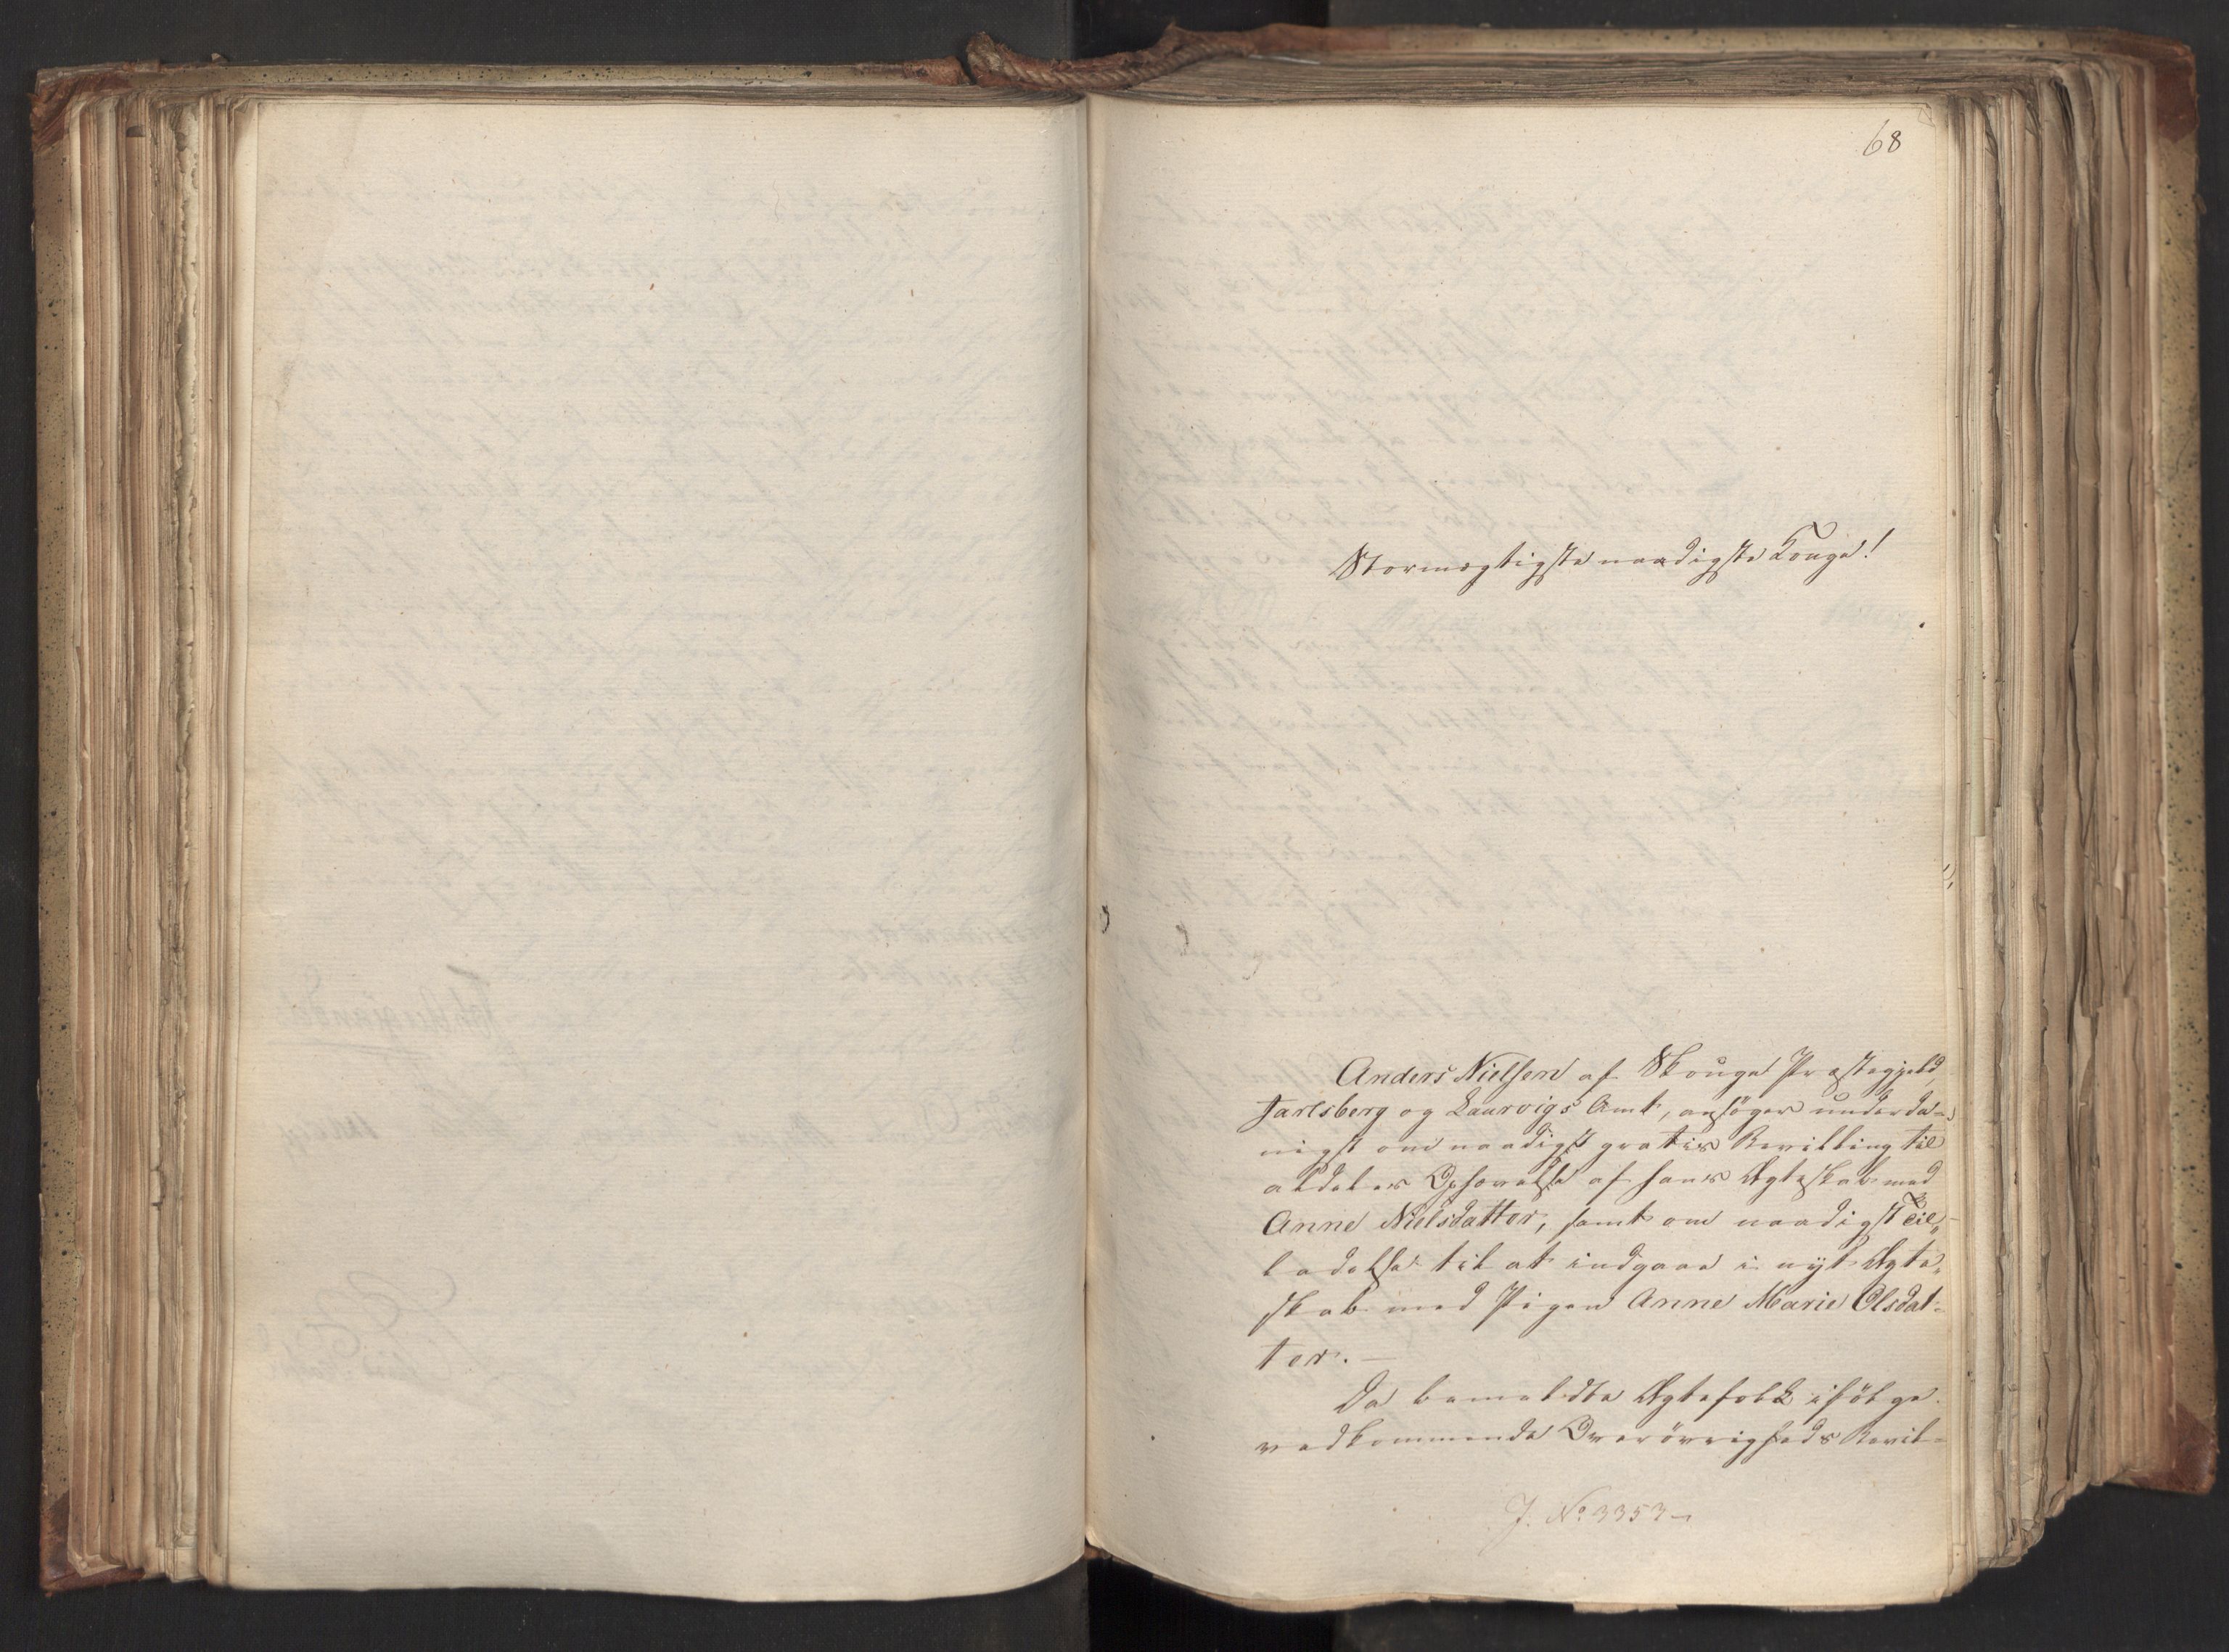 68
Stormægtigste naadigste Konge!
Anders Nielsen af Skouge Præstegjeld,
Jarlsberg og Laurvigs Amt, ansöger underda-
nigst om naadigst gratis Bevilling til
aldeles Ophævelse af hans Ægteskab med
Anne Nielsdatter, samt om naadigst Til-
ladelse til at indgaae i nyt Ægte-
skab med Pigen Anne Marie Olsdat-
ter. —
Da bemeldte Ægtefolk ifölge
vedkommende Överövrigheds Bevil-
J. No 3353